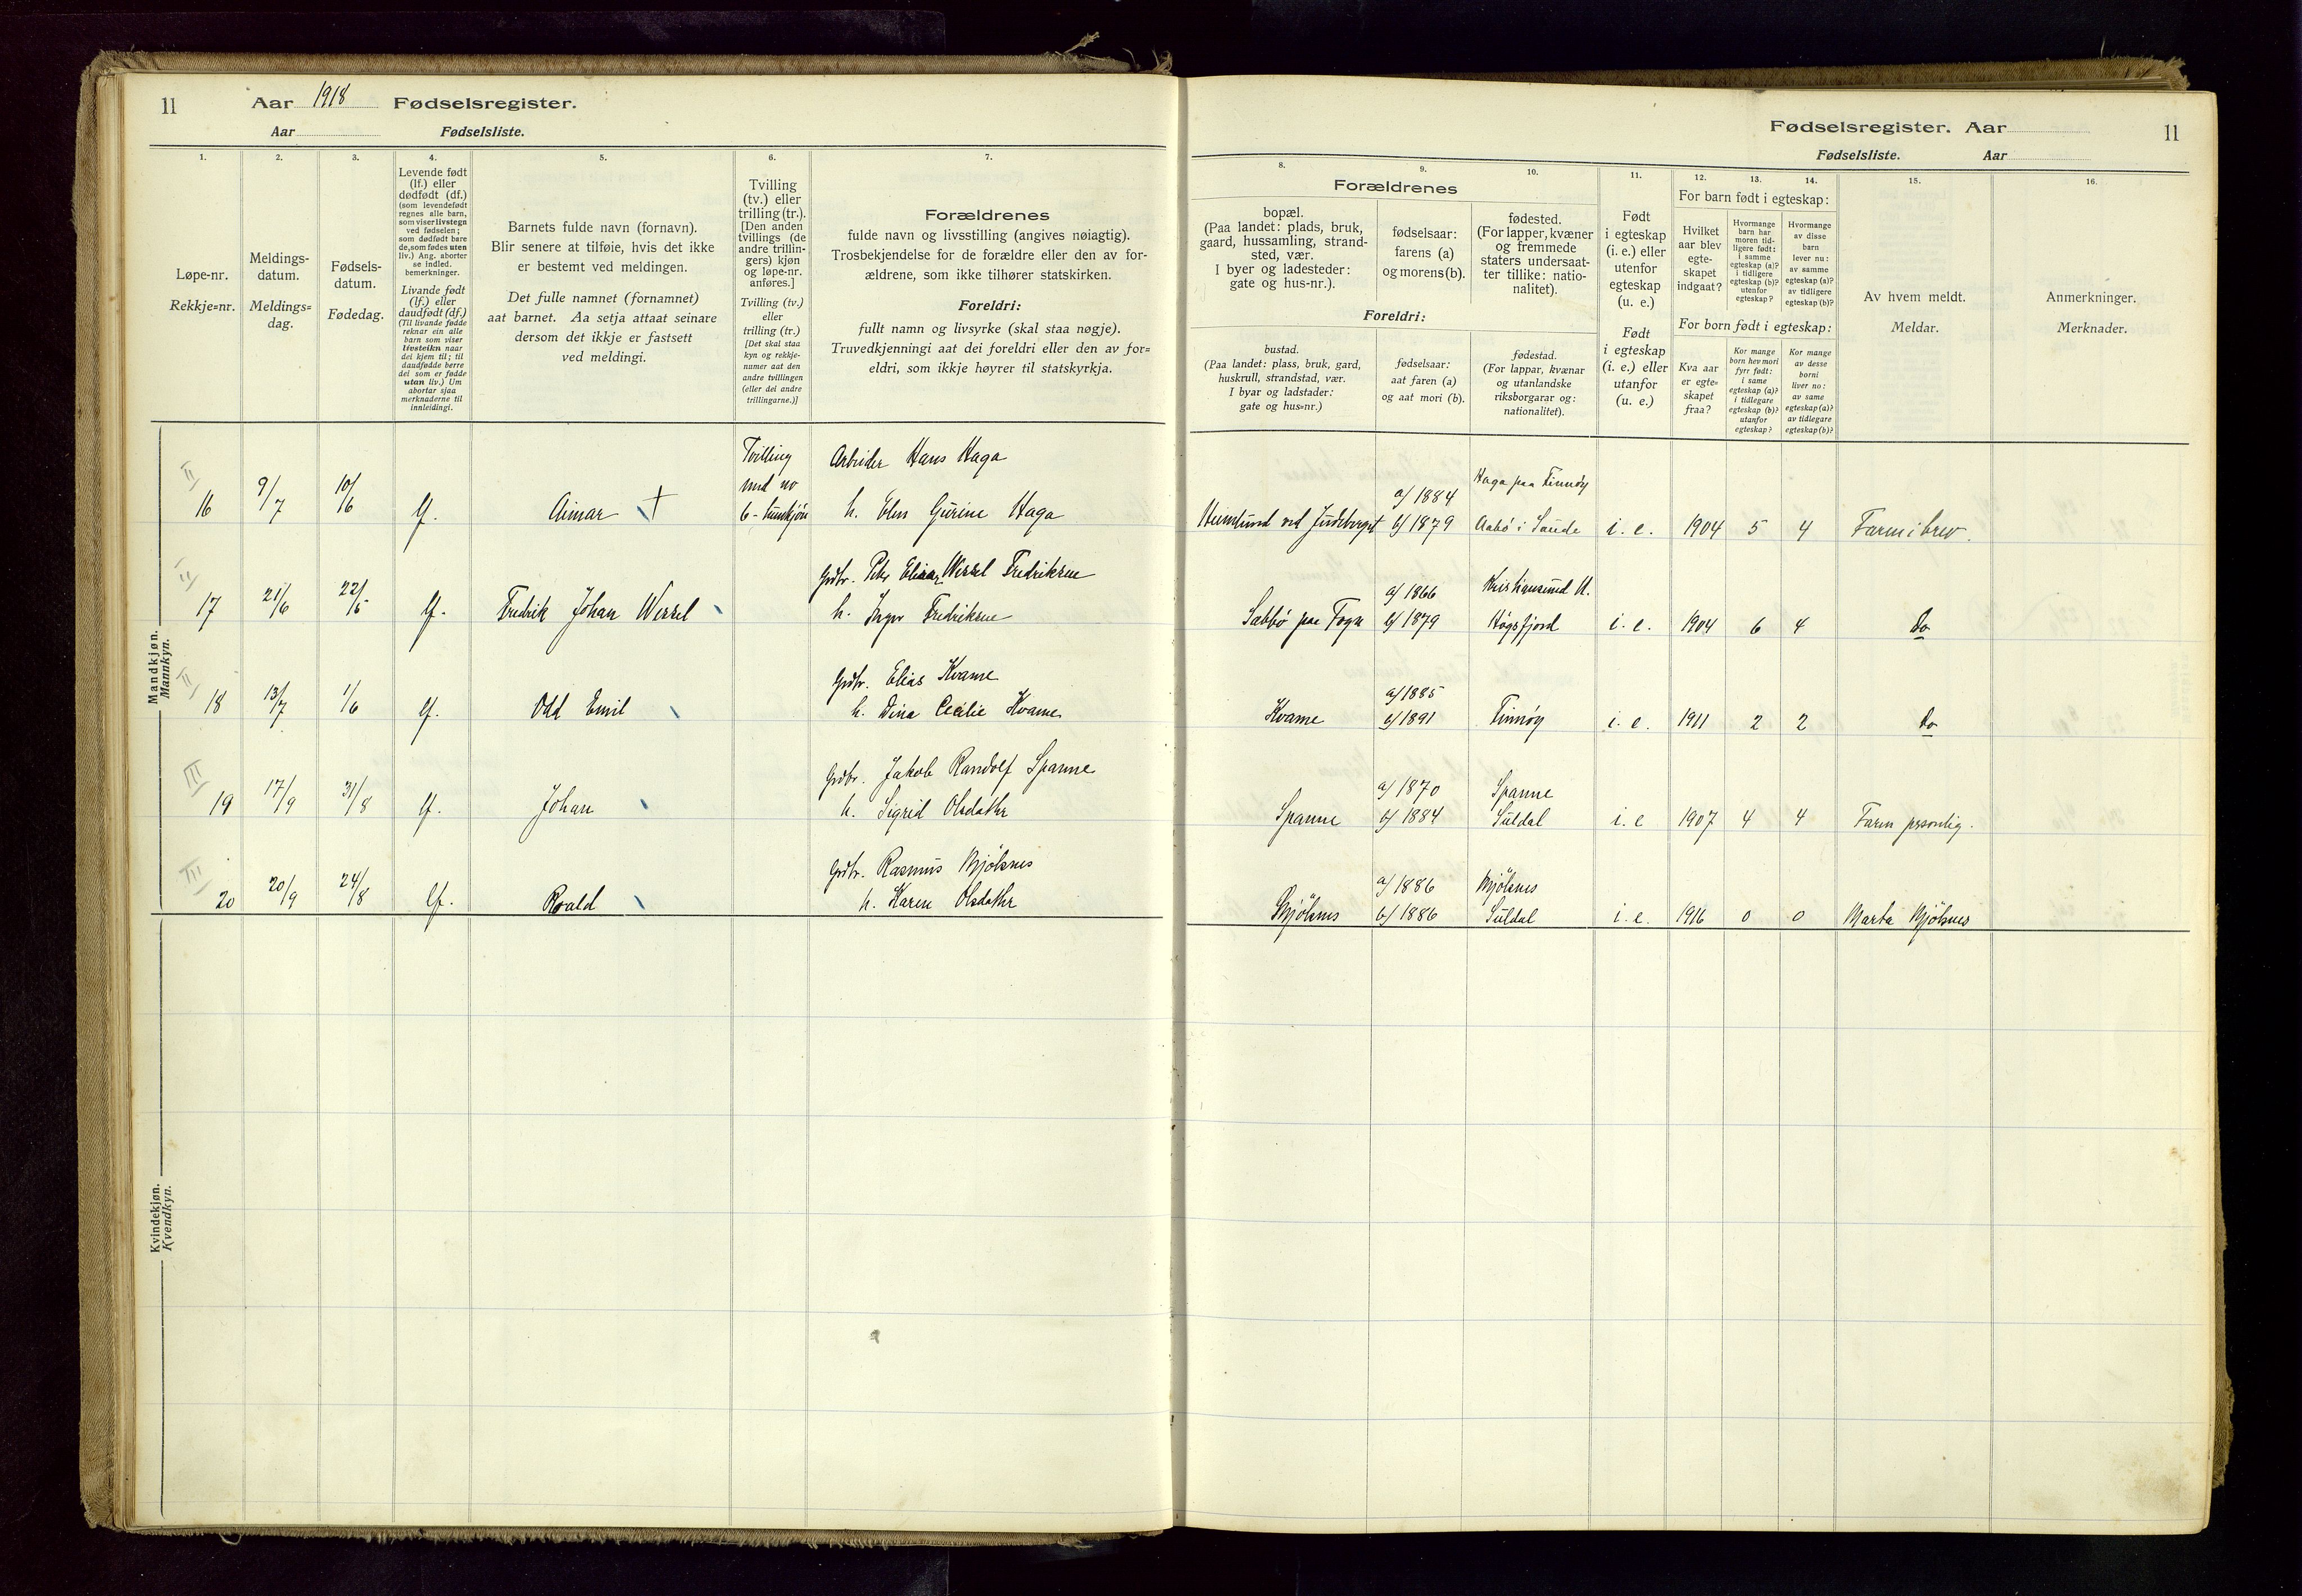 11 Aar 1918 Fødselsregister.
Aar Fødselsliste.
1. 2. 3. 4. 5. 6. 7.
Løpe-nr.
Rekkje=nr.
Meldings-
datum.
Meldings=
dag.
Fødsels-
datum.
Fødedag.
Levende født
(lf.) eller
dødfødt (df.)
(som levendefødt
regnes alle barn,
som viser livstegn
ved fødselen;
som dødfødt bare
de, som fødes uten
liv.) Ang. aborter
se indled.
bemerkninger.
Livande født
(lf.) eller
daudfødt (df.)
(Til livande fødde
reknar ein alle
barn som viser
livsteikn naar
dei kjem til; til
daudfødde berre
dei som er fødde
utan liv.) Um
abortar sjaa
merknaderne til
innleidingi.
Barnets fulde navn (fornavn).
Blir senere at tilføie, hvis det ikke
er bestemt ved meldingen.
Det fulle namnet (fornamnet)
aat barnet. Aa setja attaat seinare
dersom det ikkje er fastsett
ved meldingi.
Tvilling
(tv.) eller
trilling (tr.).
[Den anden
tvillings (de
andre trillin-
gers) kjøn
og løpe-nr.
anføres.]
Tvilling (tv.)
eller
trilling (tr.)
[Det skal staa
kyn og rekkje-
numer aat den
andre tvillingen
(eller dei andre
trillingarne.)]
Forældrenes
fulde navn og livsstilling (angives nøiagtig).
Trosbekjendelse for de forældre eller den av for-
ældrene, som ikke tilhører statskirken.
Foreldri:
fullt namn og livsyrke (skal staa nøgje).
Truvedkjenningi aat dei foreldri eller den av for=
eldri, som ikkje høyrer til statskyrkja.
Mandkjøn.
Mannkyn.
II
16 9/7 10/6 lf. Aimar + Tvilling
med no
6 - kvindkjøn
Arbeider Hans Haga
h. Elen Gurine Haga
II
17 21/6 22/5 lf. Fredrik Johan Wessel
Grdbr. Peter Elias Wessel Fredriksen
h. Inger Fredriksen
II
18 13/7 1/6 lf. Odd Emil
Grdbr. Elias Kvame
h. Dina Cecilie Kvame
III
19 17/9 31/8 lf. Johan
Grdbr. Jakob Randolf Spanne
h. Sigrid Olsdatter
III
20 20/9 24/8 lf. Roald
Grdbr. Rasmus Mjølsnes
h. Karen Olsdatter
Kvindekjøn.
Kvendkyn.
Fødselsregister. Aar 11
Fødselsliste. Aar
8. 9. 10. 11. 12. 13. 14. 15. 16.
Forældrenes
bopæl.
(Paa landet: plads, bruk,
gaard, hussamling, strand-
sted, vær.
I byer og ladesteder:
gate og hus-nr.).
fødselsaar:
farens (a)
og morens (b).
fødested.
(For lapper, kvæner
og fremmede
staters undersaat-
ter tillike: natio-
nalitet).
Foreldri:
bustad.
(Paa landet: plass, bruk, gard,
huskrull, strandstad, vær.
I byar og ladstader:
gate og hus=nr.)
fødselsaar:
aat faren (a)
og aat mori (b).
fødestad.
(For lappar, kvænar
og utanlandske
riksborgarar og:
nationalitet).
Født
i egteskap
(i. e.) eller
utenfor
egteskap
(u. e.)
Født
i egteskap
(i. e.) eller
utanfor
(u. e.)
For barn født i egteskap:
Hvilket
aar blev
egte-
skapet
indgaat?
Hvormange
barn har
moren tid-
ligere født:
i samme
egteskap (a)?
i tidligere
egteskap (b)?
utenfor
egteskap?
Hvormange
av disse
barn
lever nu:
av samme
egteskap (a)?
av tidligere
egteskap (b)?
For born født i egteskap:
Kva aar
er egte=
skapet
fraa?
Kor mange
born hev mori
fyrr født:
i same
egteskap (a)?
i tidlegare
egteskap (b)?
utanfor
egteskap?
Kor mange
av desse
borni
liver no:
av same
egteskap (a)?
av tidlegare
egteskap (b)?
Av hvem meldt.
Meldar.
Anmerkninger.
Merknader.
a/ 1884 Haga paa Finnøy
b/ 1879 Aabø i Saude i. e. 1904 5 4 Faren i brev.
a/ 1866 Kristiansund N.
Sæbbø paa Fogn b/ 1879 Høgsfjord i. e. 1904 6 4 do
a/ 1885
Kvame b/ 1891 Finnøy i. e. 1911 2 2 do
a/ 1870 Spanne
Spanne b/ 1884 Suldal i. e 1907 4 4 Faren personlig.
a/ 1886 Mjølsnes
Mjølsnes b/ 1886 Suldal i. e. 1916 0 0 Marta Mjølsnes